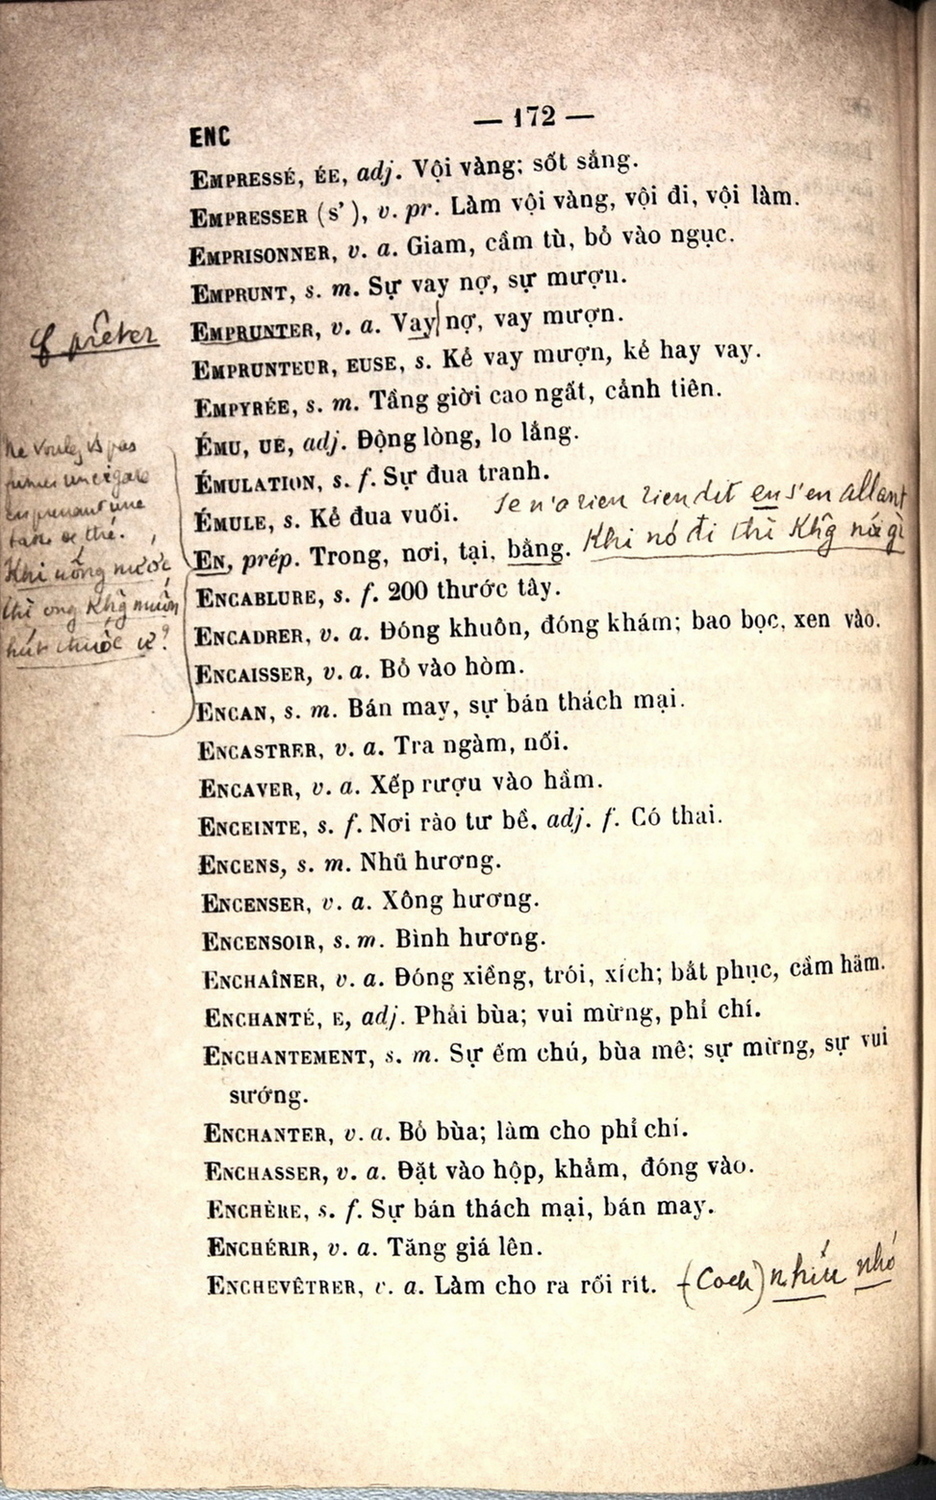 — 172 —
ENC
EMPRESSÉ, ÉE, adj. Vội vàng; sốt sắng.
EMPRESSER (s'), v. pr. Làm vội vàng, vội đi, vội làm.
EMPRISONNER, v. a. Giam, cầm tù, bỏ vào ngục.
EMPRUNT, s. m. Sự vay nợ, sự mượn.
EMPRUNTER, v. a. Vay nợ, vay mượn.
prêter
EMPRUNTEUR, EUSE, s. Kẻ vay mượn, kẻ hay vay.
EMPYRÉE, s. m. Tầng giời cao ngất, cảnh tiên.
ÉMU, UE, adj. Động lòng, lo lắng.
ÉMULATION, s. f. Sự đua tranh.
ÉMULE, s. Kẻ đua vuối.
Je n'a rien rien dit en s'en allant
EN, prép. Trong, nơi, tại, bằng.
Khi nó đi thì Khg nói gì
Ne voulez vs pas
fumer un cigare
en prenant une
tasse de thé.
Khi uống nước
thì ông Khg muốn
hút thuốc ư?
ENCABLURE, s. f. 200 thước tây.
ENCADRER, v. a. Đóng khuôn, đóng khám; bao bọc, xen vào.
ENCAISSER, v. a. Bỏ vào hòm.
ENCAN, s. m. Bán may, sự bán thách mại.
ENCASTRER, v. a. Tra ngàm, nối.
ENCAVER, v. a. Xếp rượu vào hầm.
ENCEINTE, s. f. Nơi rào tư bề, adj. f. Có thai.
ENCENS, s. m. Nhũ hương.
ENCENSER, v. a. Xông hương.
ENCENSOIR, s. m. Bình hương.
ENCHAÎNER, v. a. Đóng xiềng, trói, xích; bắt phục, cầm hãm.
ENCHANTÉ, E, adj. Phải bùa; vui mừng, phỉ chí.
ENCHANTEMENT, s. m. Sự ếm chú, bùa mê; sự mừng, sự vui
sướng.
ENCHANTER, v. a. Bỏ bùa; làm cho phỉ chí.
ENCHASSER, v. a. Đặt vào hộp, khảm, đóng vào.
ENCHÈRE, s. f. Sự bán thách mại, bán may.
ENCHÉRIR, v. a. Tăng giá lên.
ENCHEVÊTRER, v. a. Làm cho ra rối rít.